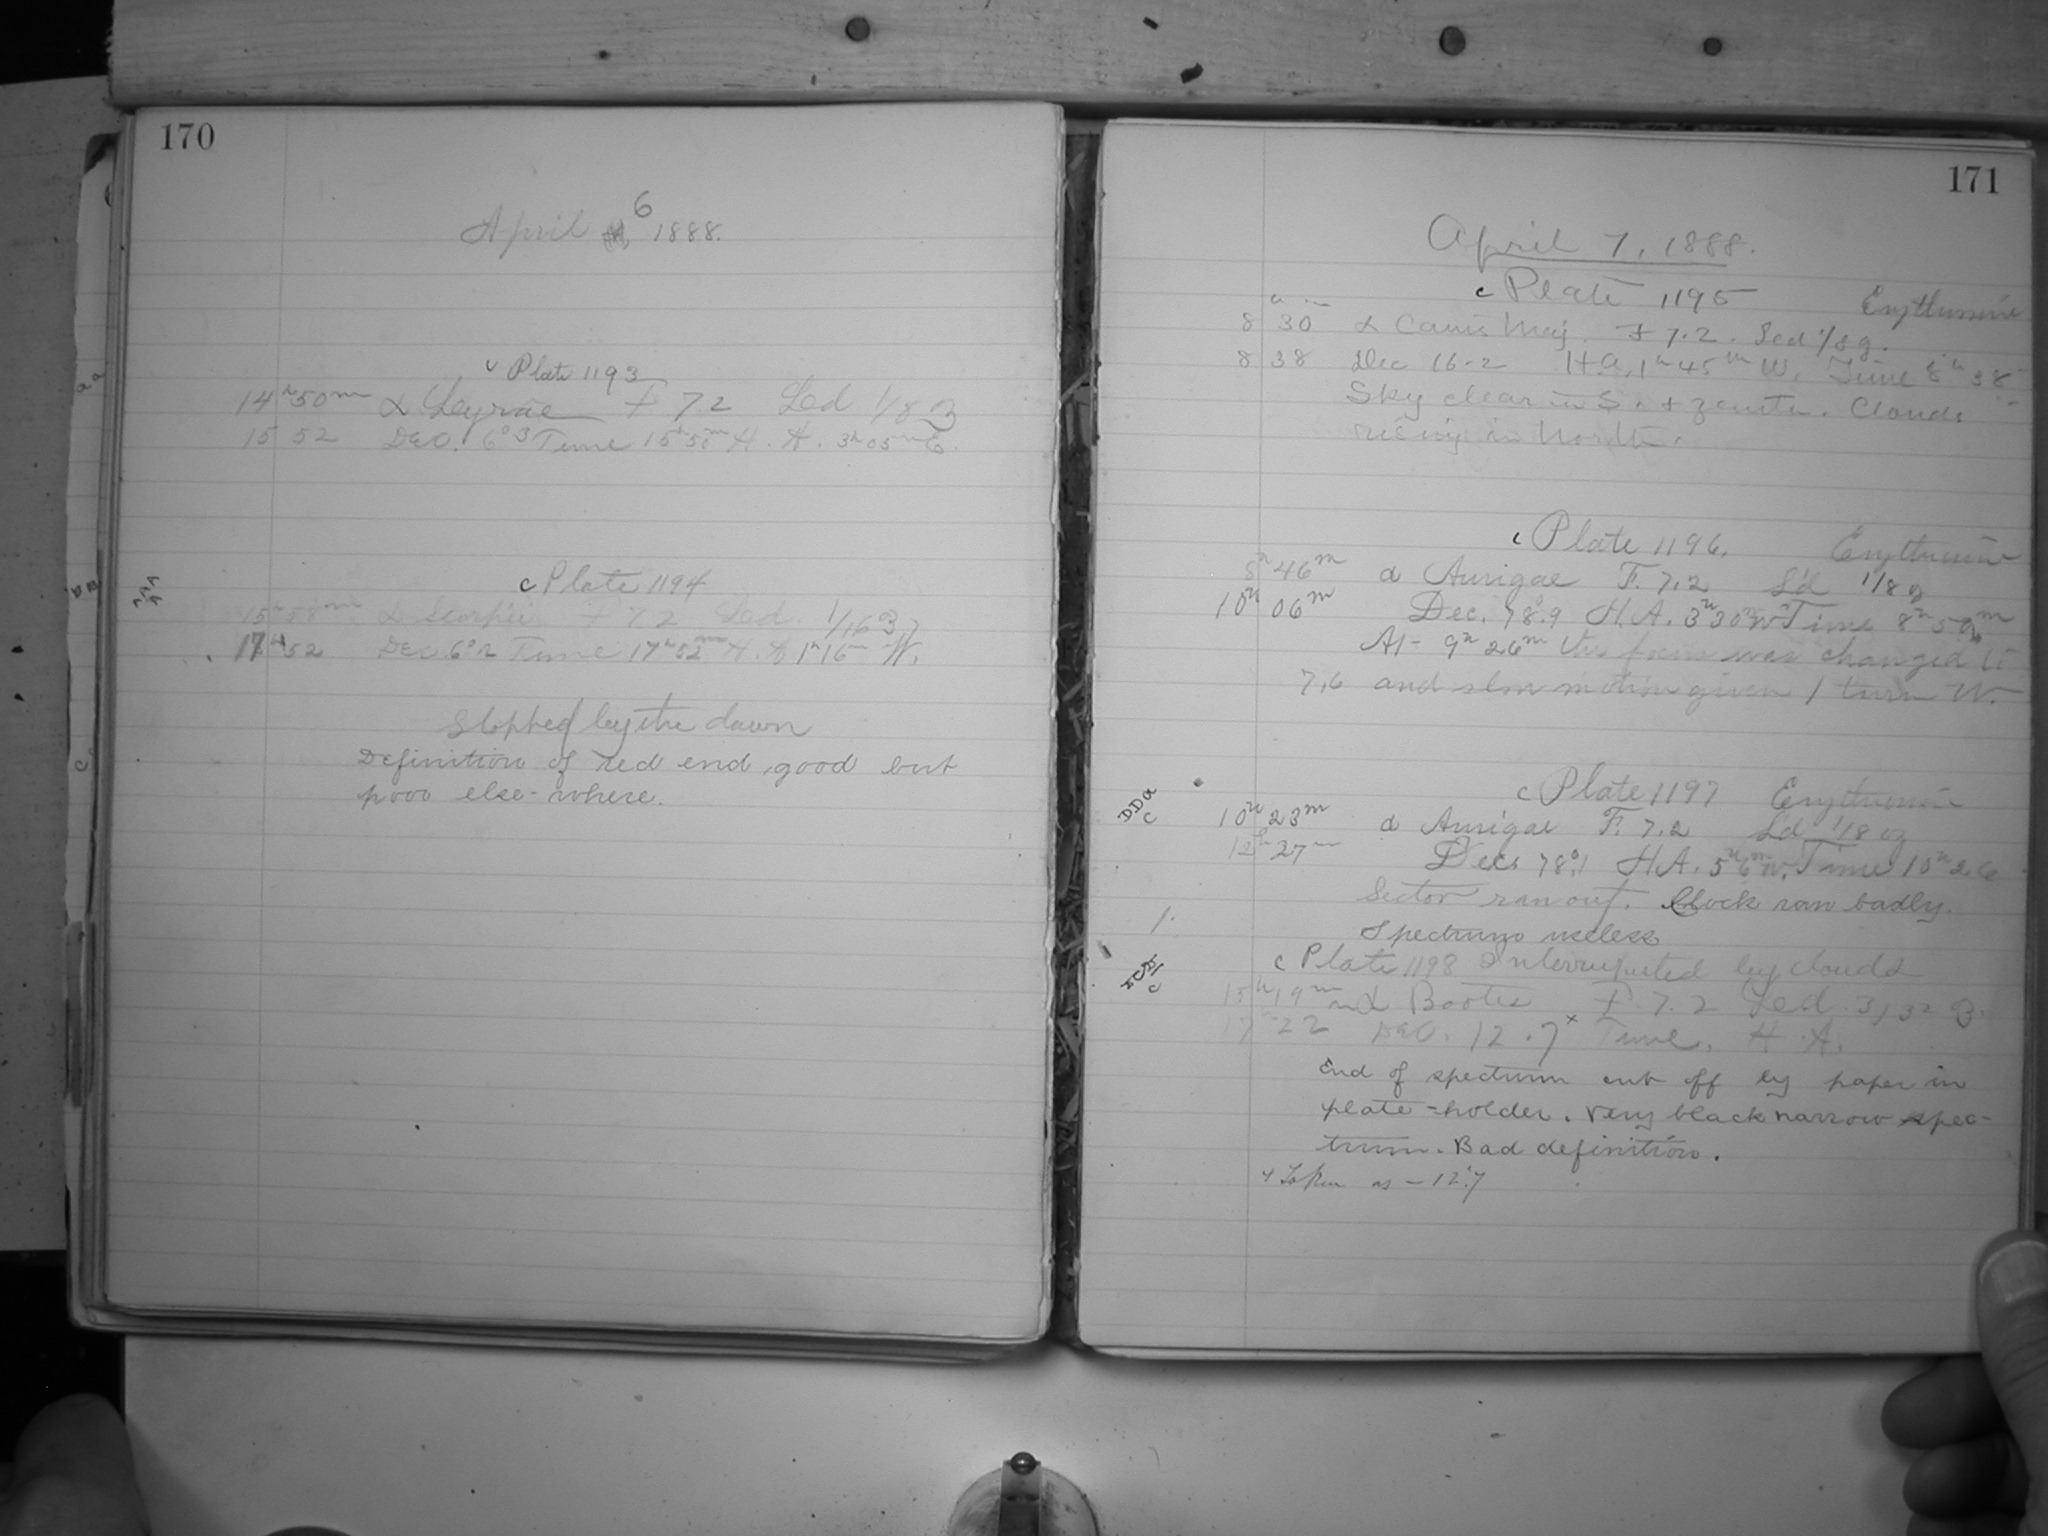 170
April 6 1888.
c Plate 1193
14h 50m α Lyrae F 7.2 Led 1/8 ℥
15 52 Dec. 6°3 Time 15h 51m H. A. 3h 05m E.
c Plate 1194
15h 58m α Scorpii F 7.2 Led. 1/16 ℥
17h 52 Dec. 6°2 Time 17h 52m H. A 1h 16m W.
Stopped by the dawn
Definition of red end good but
poor else-where.
171
April 7, 1888.
c Plate 1195 Erythrosine
8h 30m α Canis Maj. F 7.2. Led 1/8 g.
8 38 Dec 16.2 H.A. 1h 45m W. Time 8h 38
Sky clear in S. + zenith. Clouds
rising in North.
c Plate 1196. Erythrosine
8h 46m α Aurigae F. 7.2 L'd 1/8 oz
10h 06m Dec. 78°.9 H.A. 3h 30m W Time 8h 50m
At 9h 26m the focus was changed to
7.6 and slow motion given 1 turn W.
c Plate 1197 Erythrosine
10h 23m α Aurigae F. 7.2 L'd 1/8 oz
12h 27m Dec. 78°.1 H.A. 5h 6m W. Time 10h 26
Sector ran out. Clock ran badly.
Spectrum useless
c Plate 1198 Interrupted by clouds
15h 19m α Bootis F. 7.2 Led. 3/32 ℥.
17h 22 Dec. 12.7x Time. H.A.
End of spectrum cut off by paper in
plate-holder. Very black narrow spec-
trum. Bad definition.
x Taken as - 12°.7